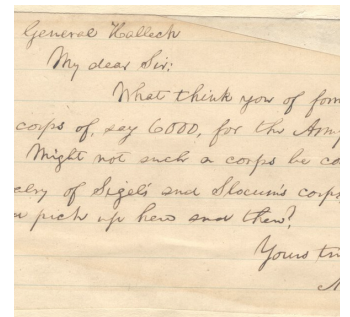 General Halleck
My dear Sir:
What think you of form
corps of, say 6000, for the Army
Might not such a corps be co
alry of Sigel's and Slocum's corps
u pick up here and there?
Yours tru